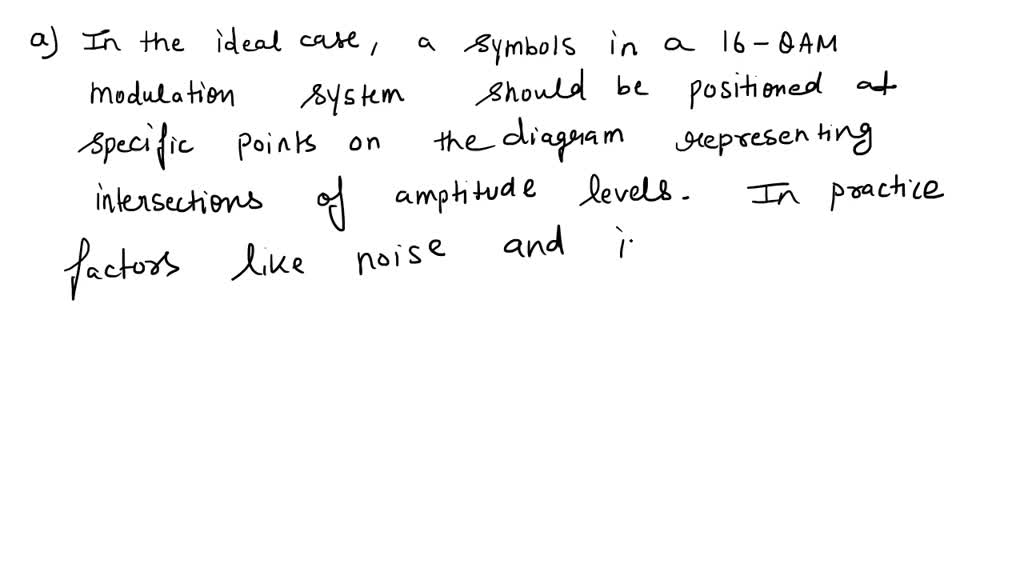 a) In the ideal case, a symbols in a 16-QAM
modulation system should be positioned at
specific points on the diagram representing
intersections of amptitude levels. In practice
factors like noise and i